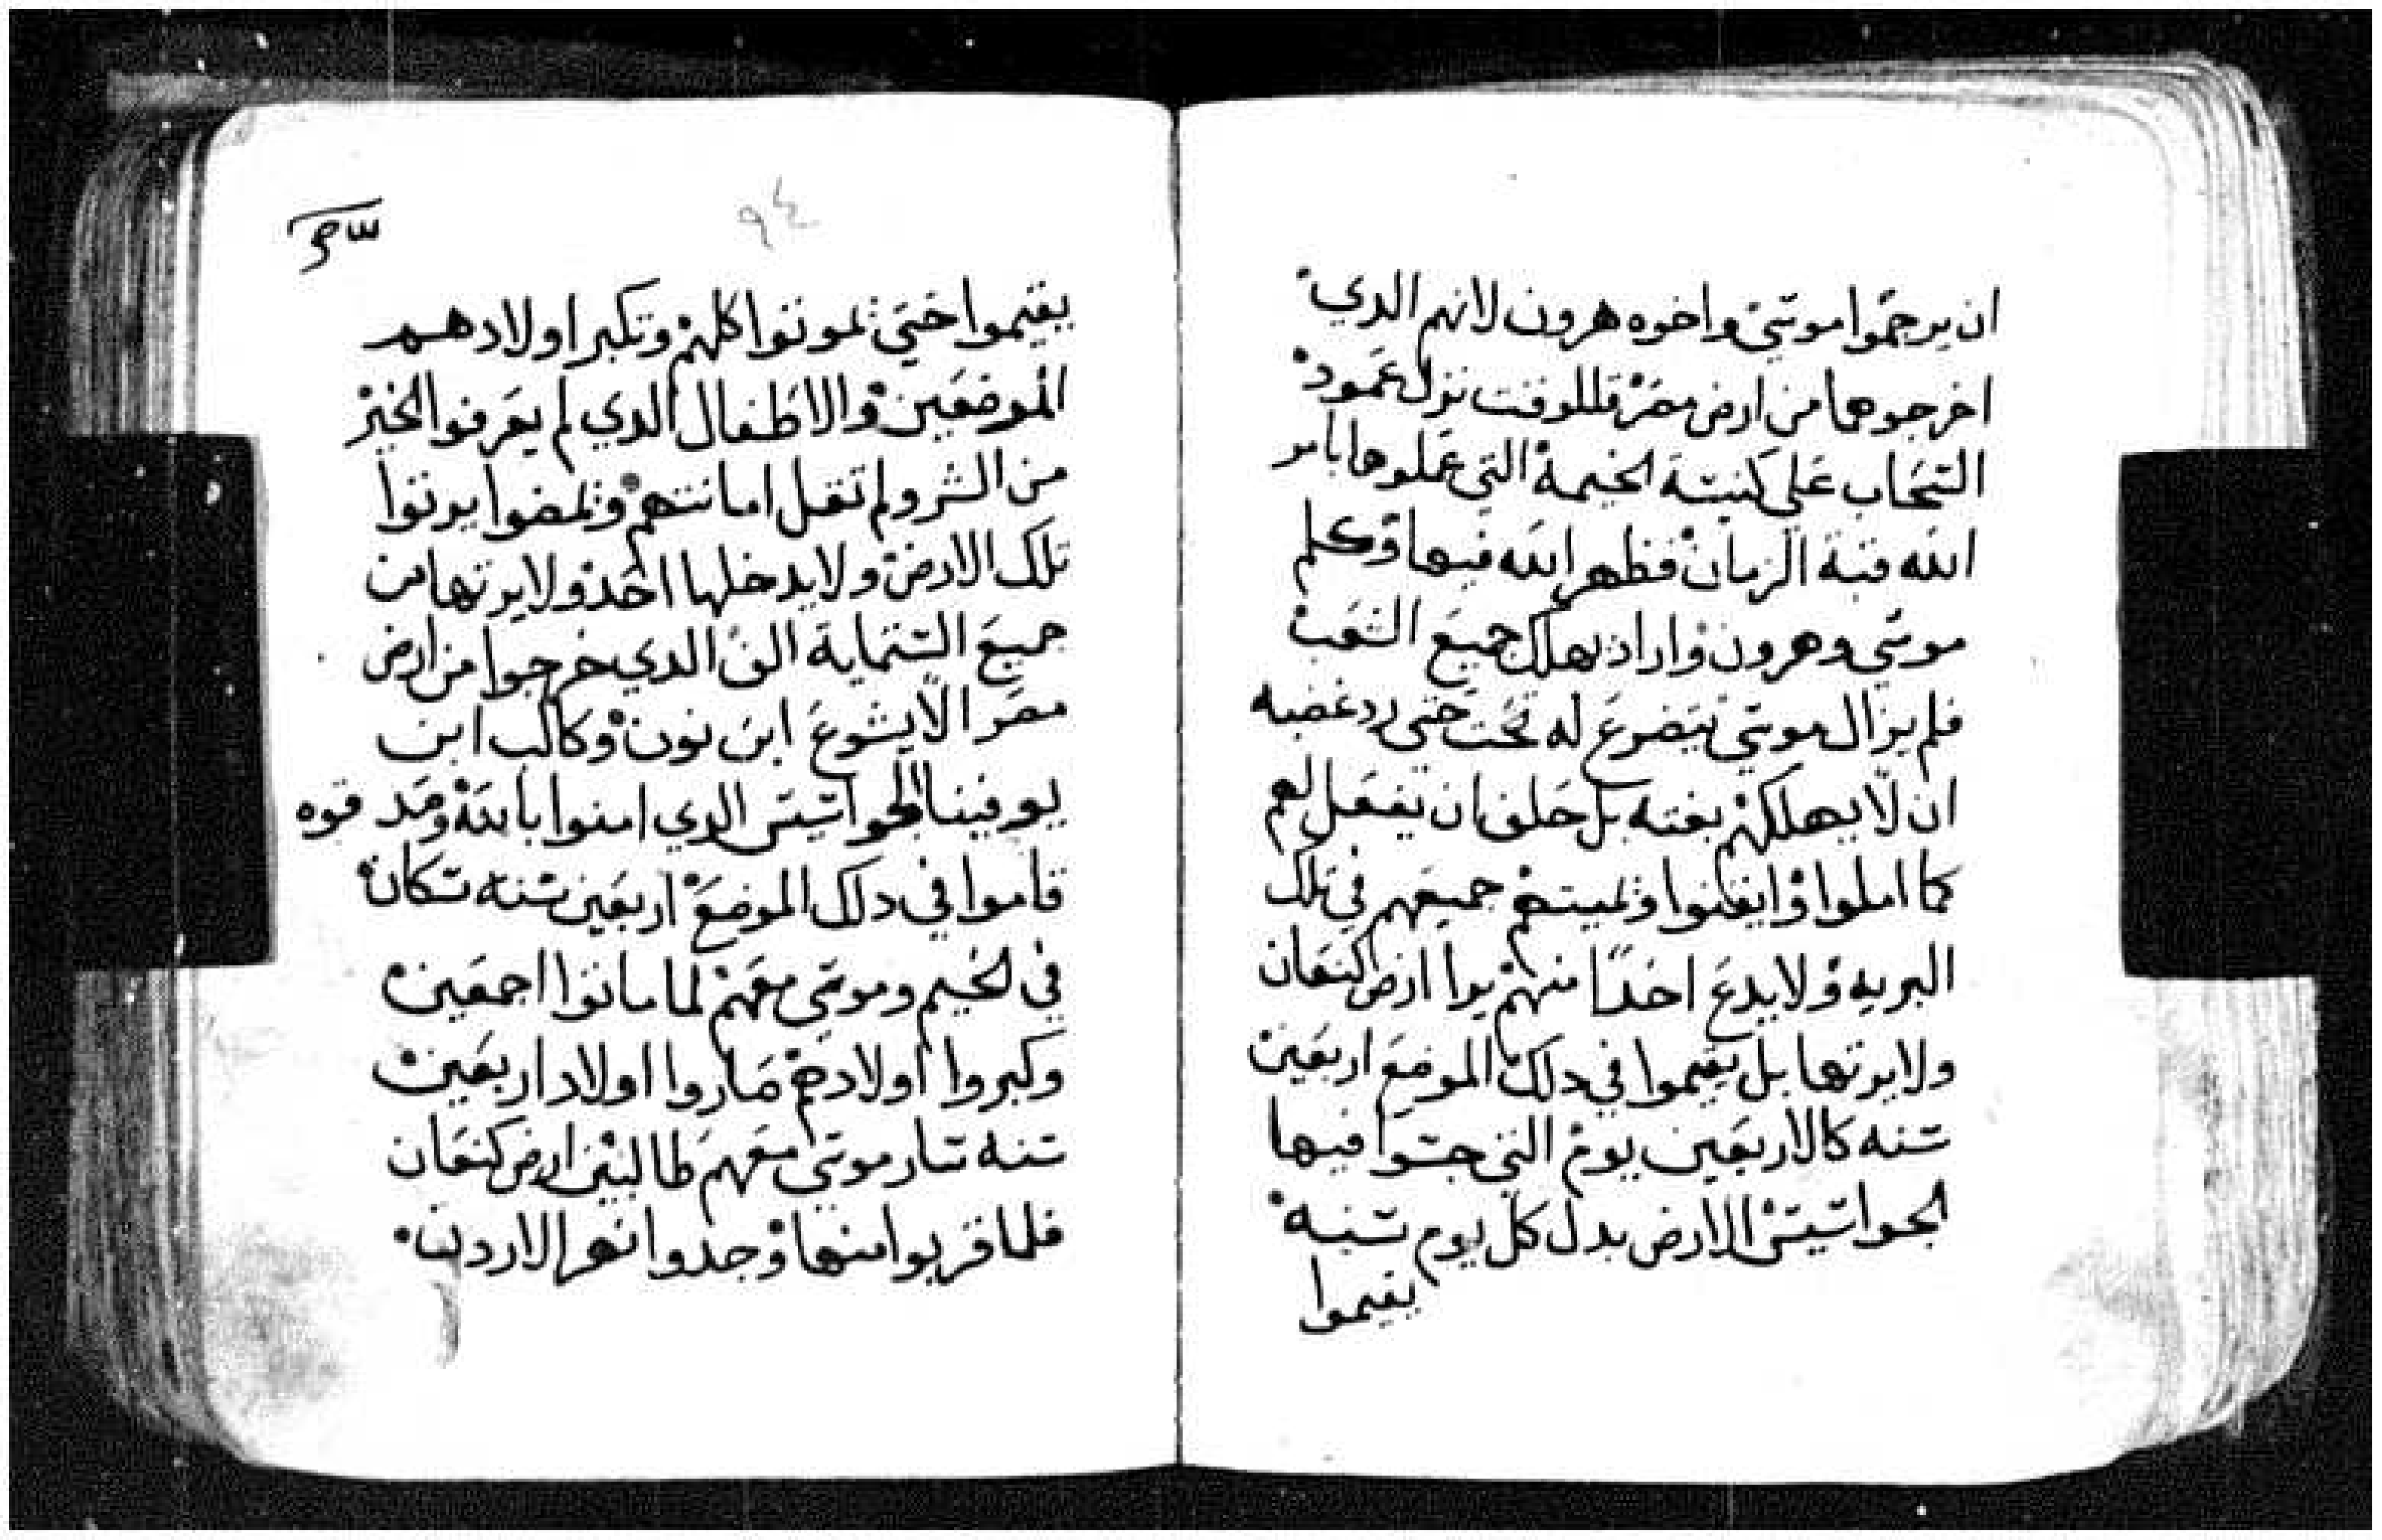 ان يرجموا موسي واخوه هرون لانهم الدي
اخرجوهما من ارض مصر فللوقت نزل عمود
السحاب علي كنيسة الخيمة التي عملوها بامر
الله قبة الزمان فظهر الله فيها وكلم
موسي وهرون واراد يهلك جميع الشعب
فلم يزال موسي يتضرع له تحت حتي رد غضبه
ان لا يهلكهم بغته بل حلف ان يفعل لهم
كما املوا وايقنوا ويميتهم جميعهم في تلك
البريه ولا يدع احدًا منهم يرا ارض كنعان
ولا يرتها بل يقيموا في دلك الموضع اربعين
سنه كالاربعين يوم التي جسوا فيها
الجواسيس الارض بدل كل يوم سنه
يقيموا
٩٤
يقيموا حتي يموتوا كلهم وتكبر اولادهم
المرضعين والاطفال الدي لم يعرفوا الخير
من الشر ولم تقل امانتهم ويمضوا يرتوا
تلك الارض ولا يدخلها احد ولا يرتها من
جميع الستماية الف الدي خرجوا من ارض
مصر الا يشوع ابن نون وكالب ابن
يوفينا الجواسيس الدي امنوا بالله ومد قوه
قاموا في دلك الموضع اربعين سنه سكان
في الخيم وموسي معهم لما ماتوا اجمعين
وكبروا اولادهم صاروا اولاد اربعين
سنه سار موسي معهم طالبين ارض كنعان
فلما قربوا منها وجدوا نهر الاردن